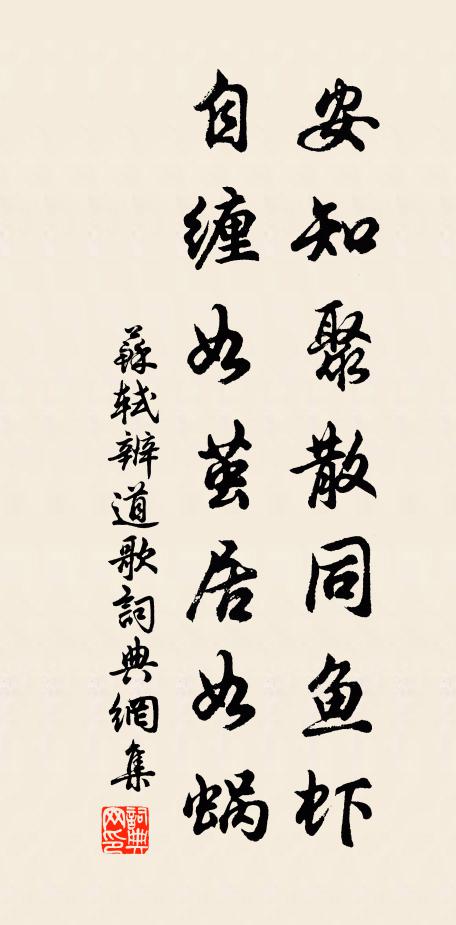 安知聚散同鱼虾
自缠如茧居如蜗
蘇轼辨道歌詞典網集
詞典网印